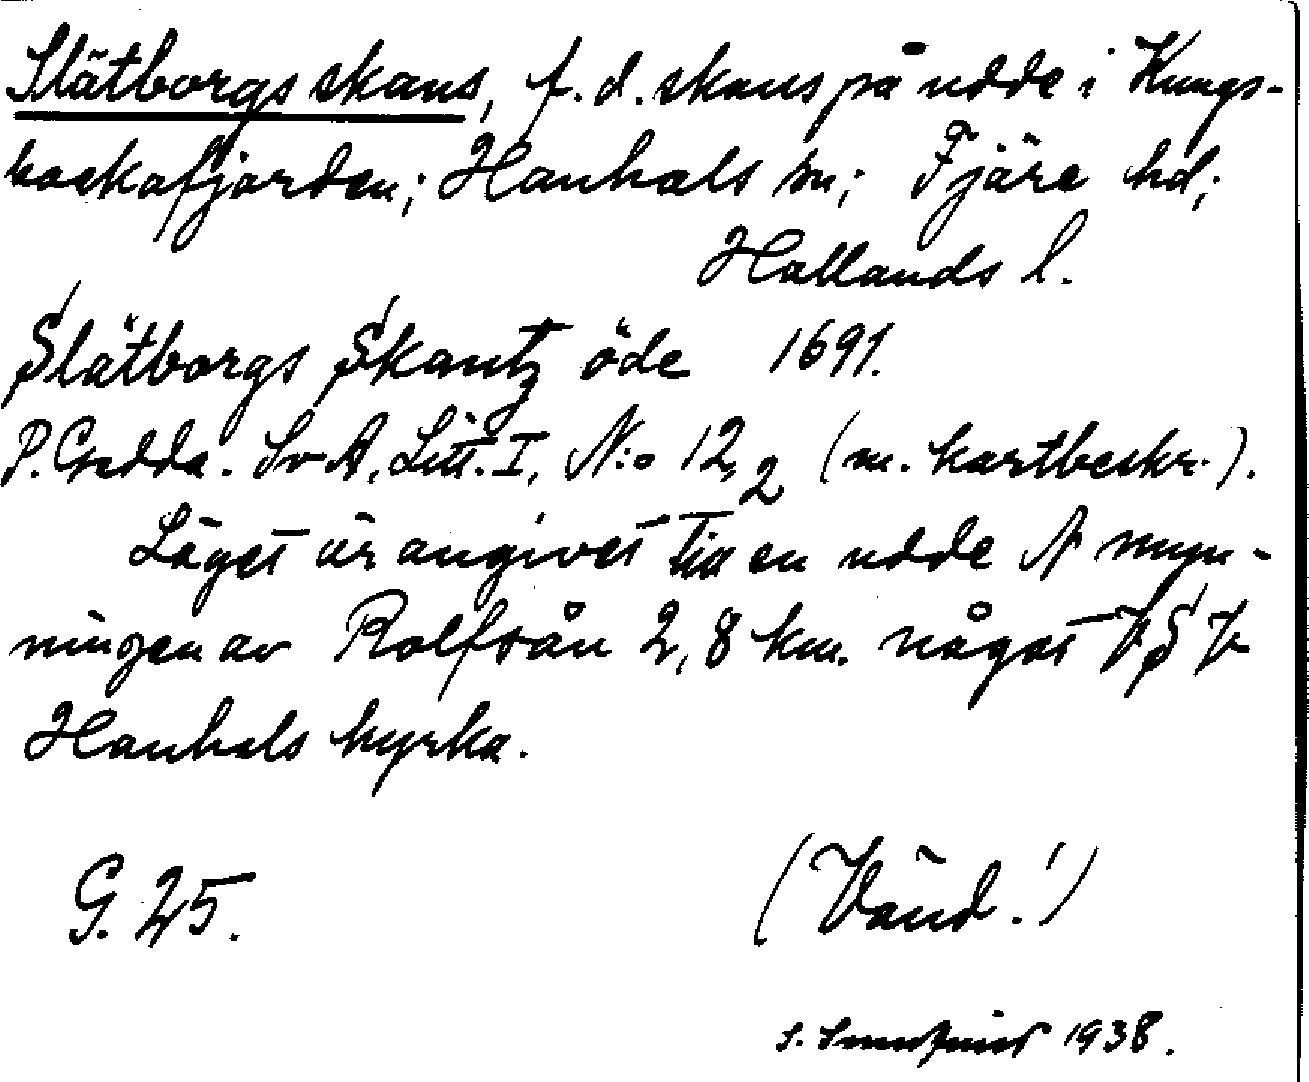 Slätborgs skans, f.d. skans på udde i Kungs-
backafjorden; Hanhals sn; Fjäre hd;
Hallands l.
Slätborgs Skantz öde 1691.
P. Gedda. Sv A, Litt. I, N:o 12,2 (m. kartbeskr.).
Läget är angivet till en udde N myn-
ningen av Rolfsån 2,8 km. något VSV
Hanhals kyrka.
G. 25.
(Vänd!)
S. 1938.